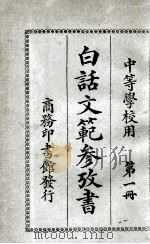 中等學校用
第一冊
白話文範參攷書
商務印書館發行